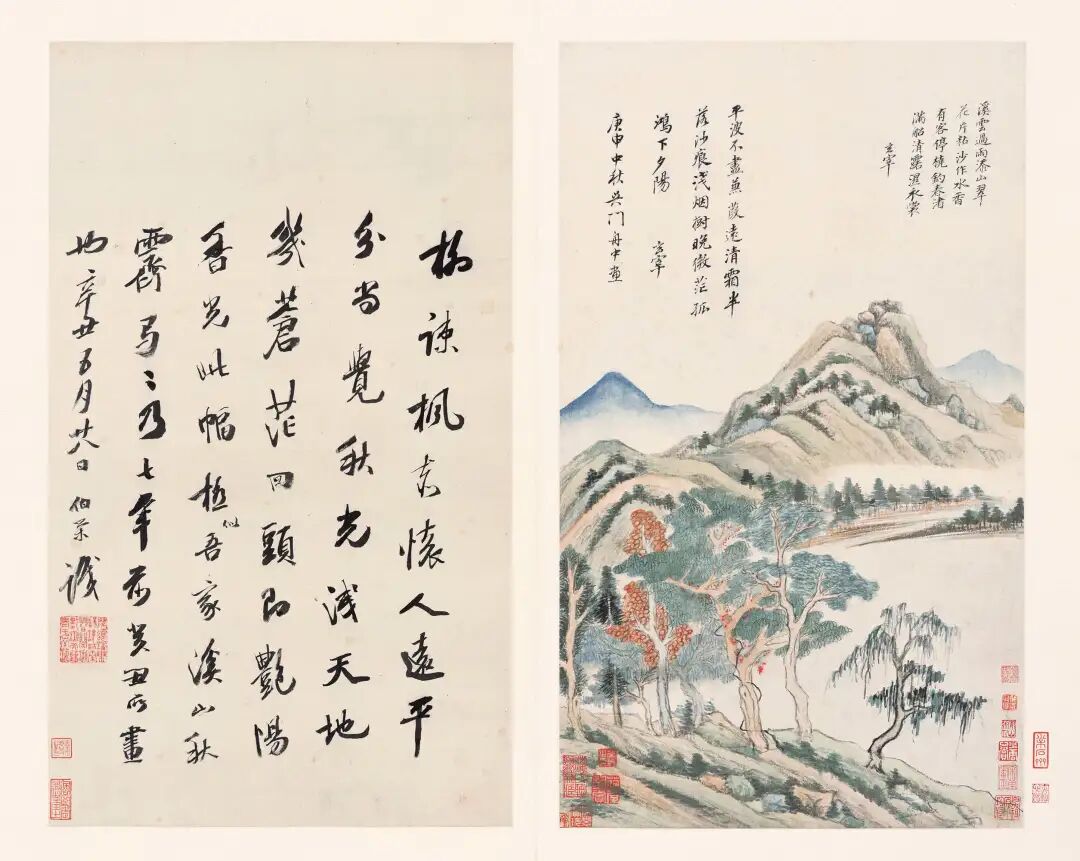 溪雲過雨添山翠
花片粘沙作水香
有客停橈釣春渚
滿船清露濕衣裳
玄宰
平波不盡蒹葭遠清霜半
落沙痕淺烟樹晚微茫孤
鴻下夕陽 玄宰
庚申中秋吳門舟中畫
柳疎楓老懷人遠平
分尚覺秋光淺天地
幾蒼茫回頭即艷陽
香光此幅極似吾家溪山秋
霽弓〻乃七年前癸丑所畫
也辛丑五月廿八日伯榮識